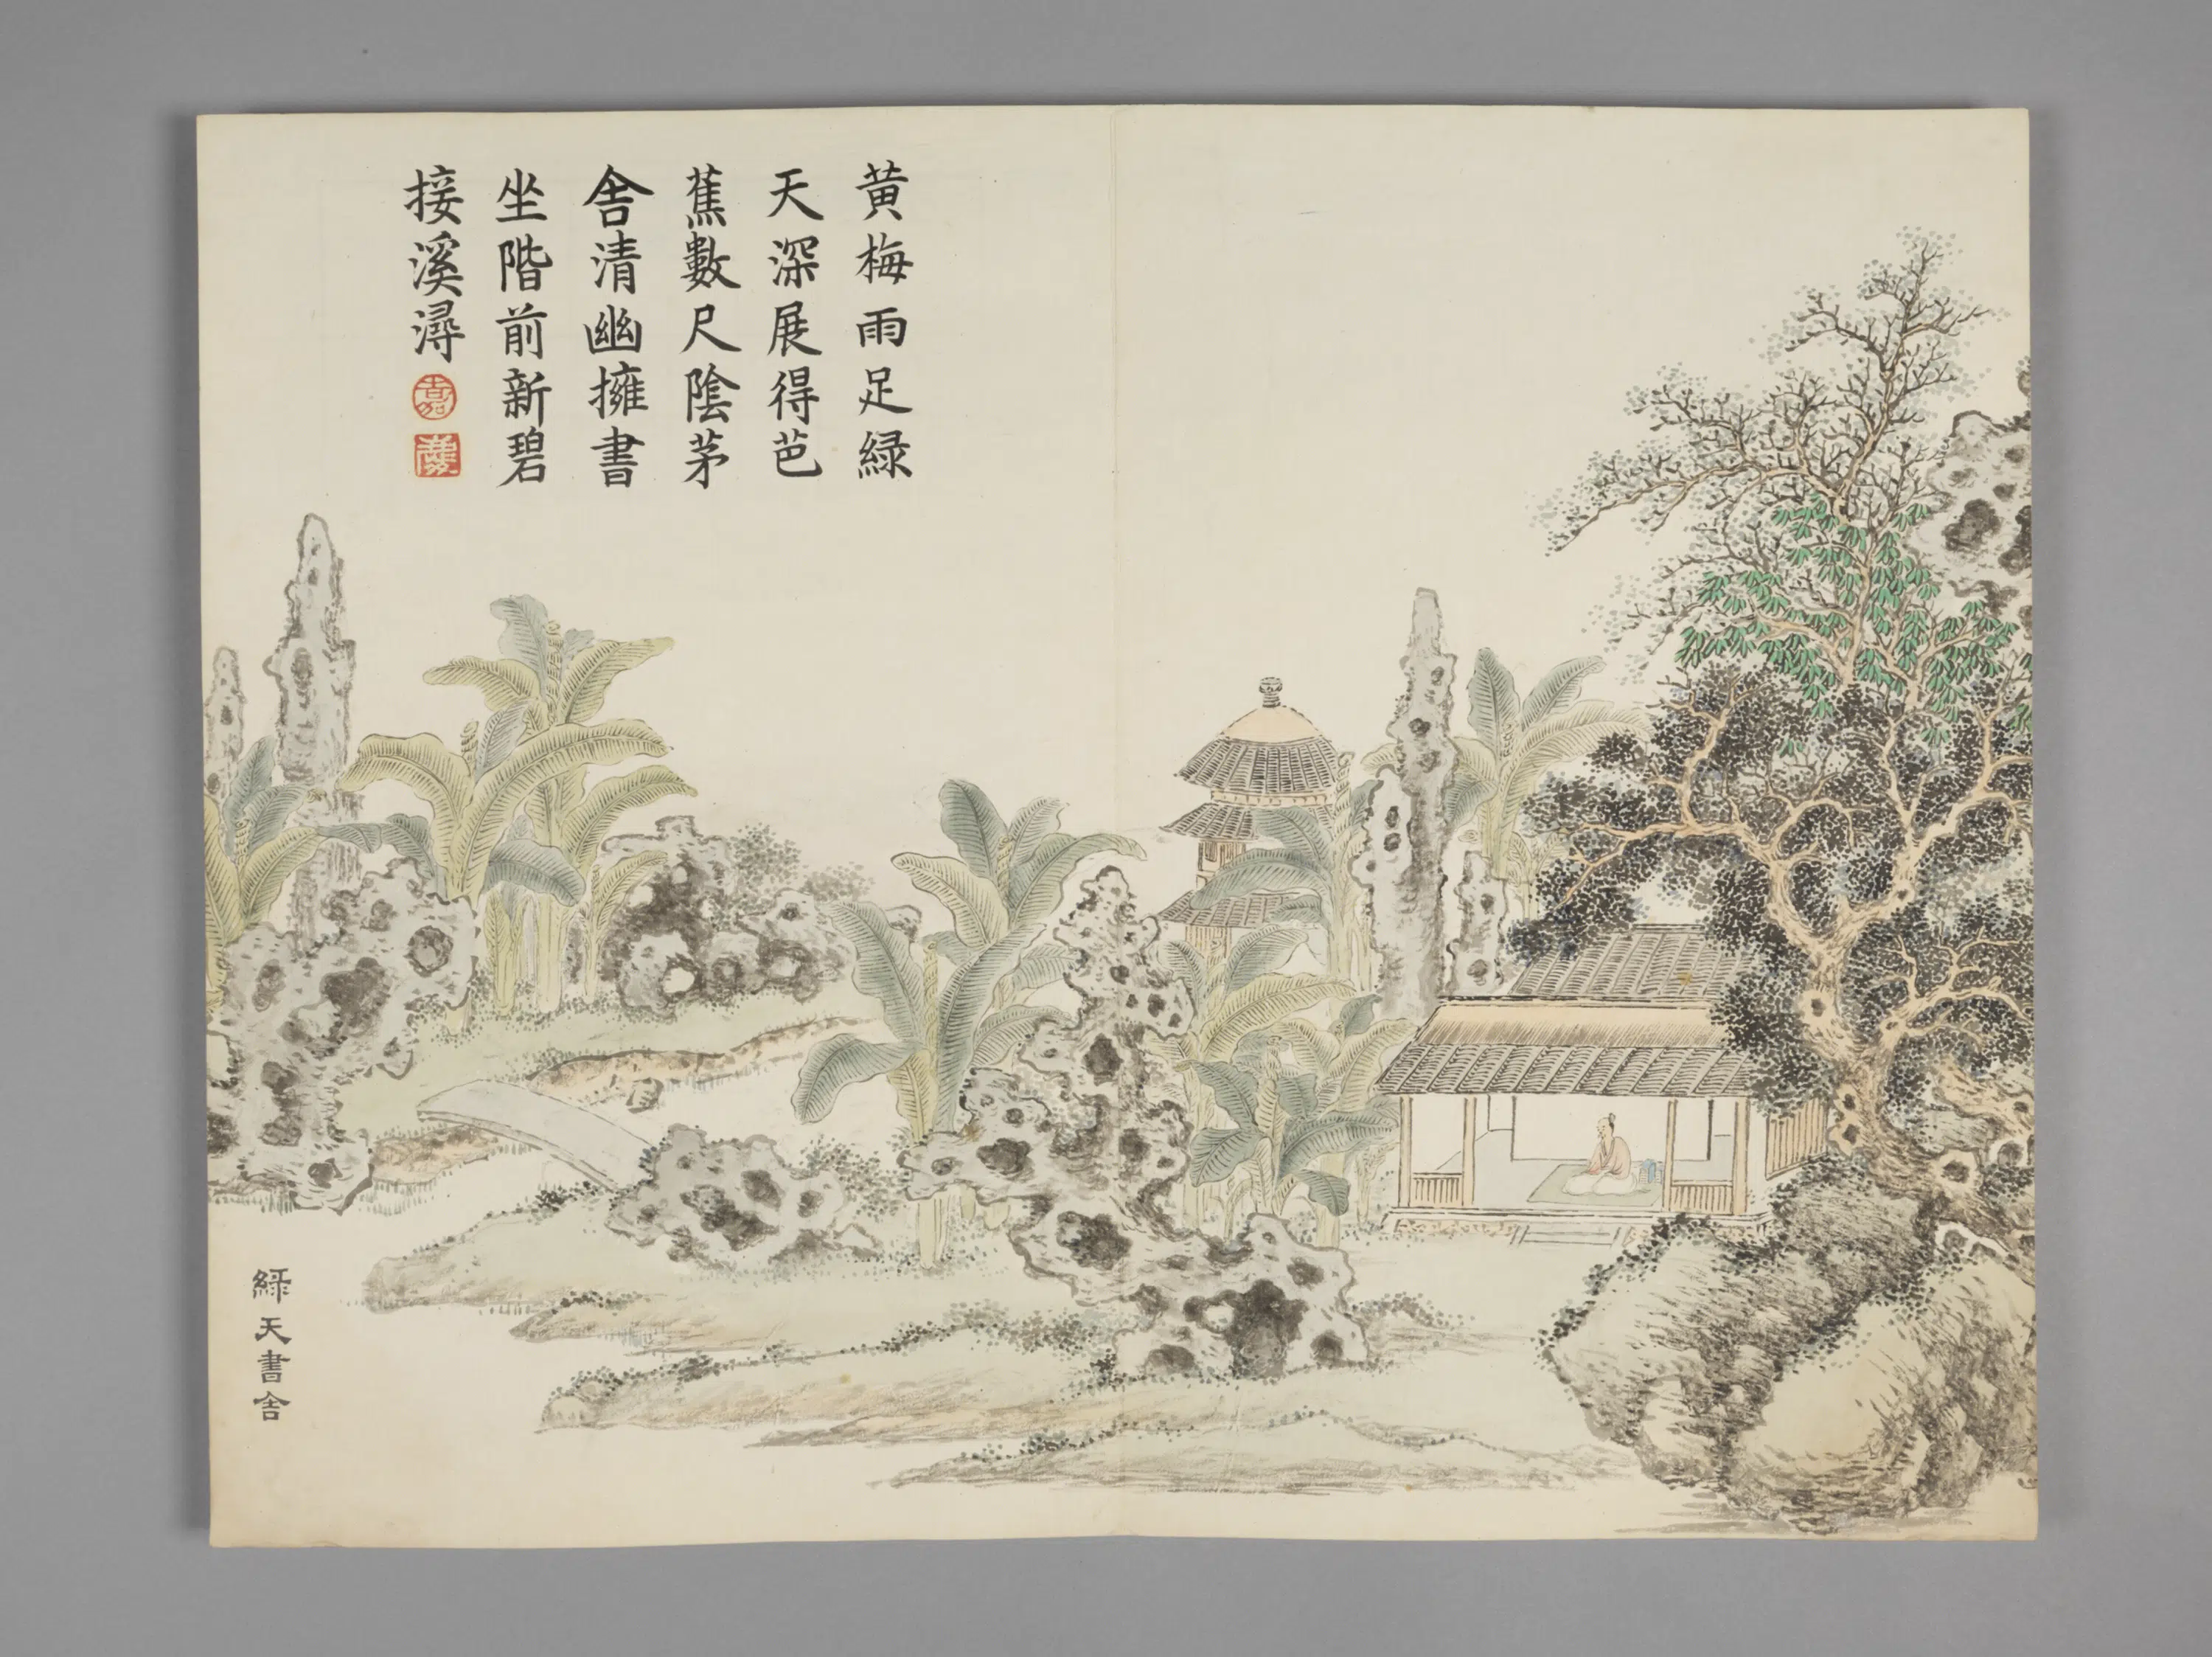 黄梅雨足緑
天深展得芭
蕉數尺陰茅
舎清幽擁書
坐階前新碧
接溪潯
嘉
緑天書舎